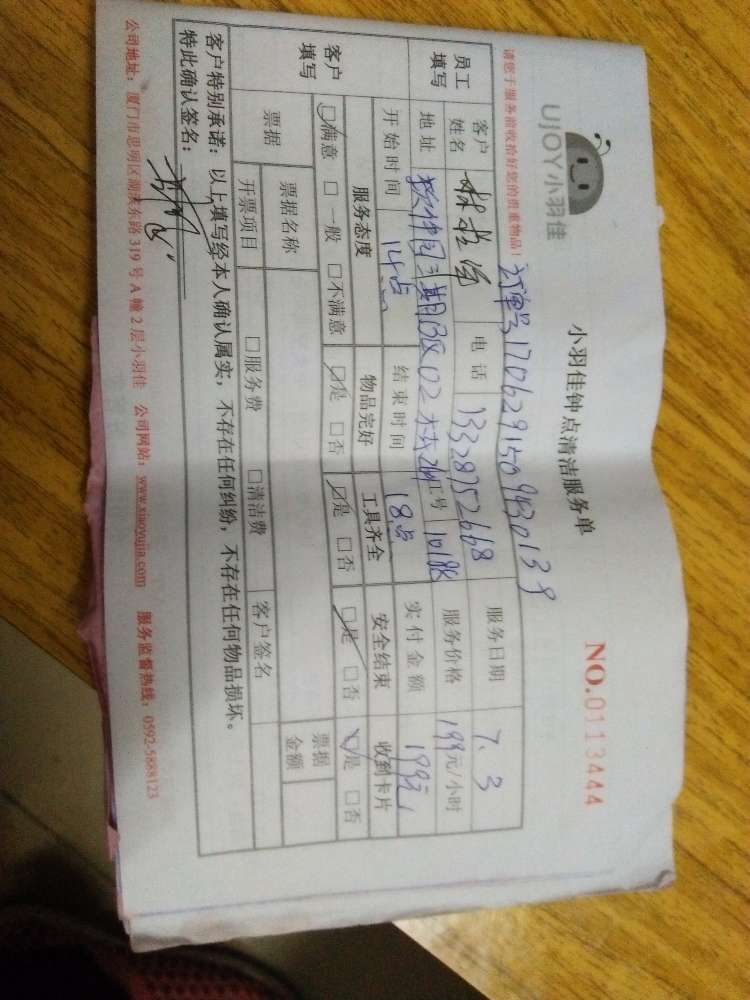 UJOY小羽佳
小羽佳钟点清洁服务单
NO.0113444
请您于服务前收拾好您的贵重物品!
订单号1706291509430139
员工填写 客户姓名 电话 13328752668 服务日期 7.3
地址 软件园二期B区02 工号 1018 服务价格 199元/小时
开始时间 14点 结束时间 18点 实付金额 199元
客户填写 服务态度 物品完好 工具齐全 安全结束 收到卡片
☑满意 □一般 □不满意 ☑是 □否 ☑是 □否 ☑是 □否 ☑是 □否
票据 票据名称 票据金额
开票项目 □服务费 □清洁费 客户签名
客户特别承诺:以上填写经本人确认属实,不存在任何纠纷,不存在任何物品损坏。
特此确认签名:
公司地址:厦门市思明区湖滨东路319号A幢2层小羽佳 公司网站:www.xiaoyujia.com 服务监督热线:0592-5888123